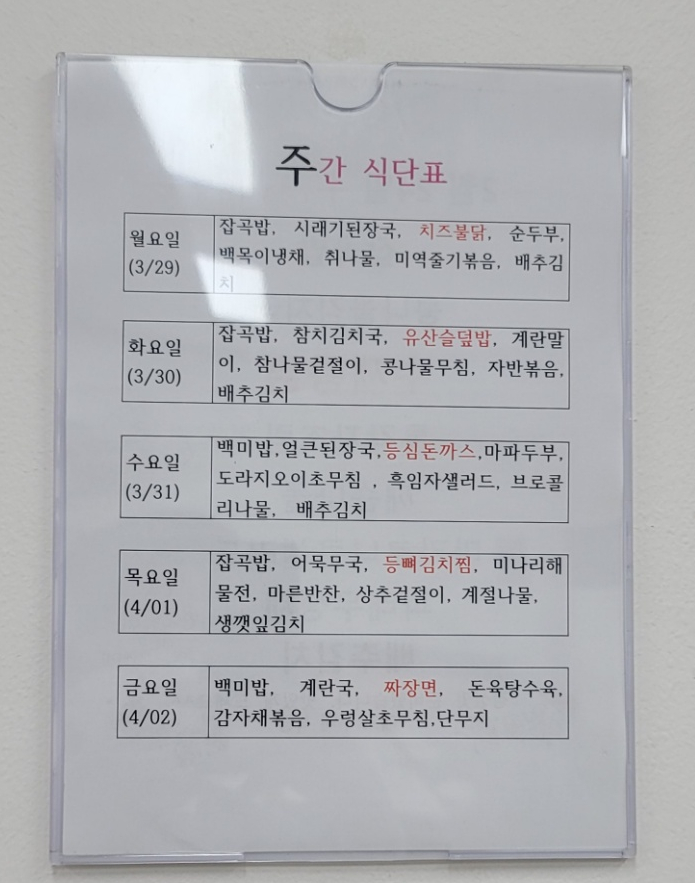 주간 식단표
월요일
(3/29)
잡곡밥, 시래기된장국, 치즈불닭, 순두부,
백목이냉채, 취나물, 미역줄기볶음, 배추김
치
화요일
(3/30)
잡곡밥, 참치김치국, 유산슬덮밥, 계란말
이, 참나물겉절이, 콩나물무침, 자반볶음,
배추김치
수요일
(3/31)
백미밥,얼큰된장국,등심돈까스,마파두부,
도라지오이초무침 , 흑임자샐러드, 브로콜
리나물, 배추김치
목요일
(4/01)
잡곡밥, 어묵무국, 등뼈김치찜, 미나리해
물전, 마른반찬, 상추겉절이, 계절나물,
생깻잎김치
금요일
(4/02)
백미밥, 계란국, 짜장면, 돈육탕수육,
감자채볶음, 우렁살초무침,단무지